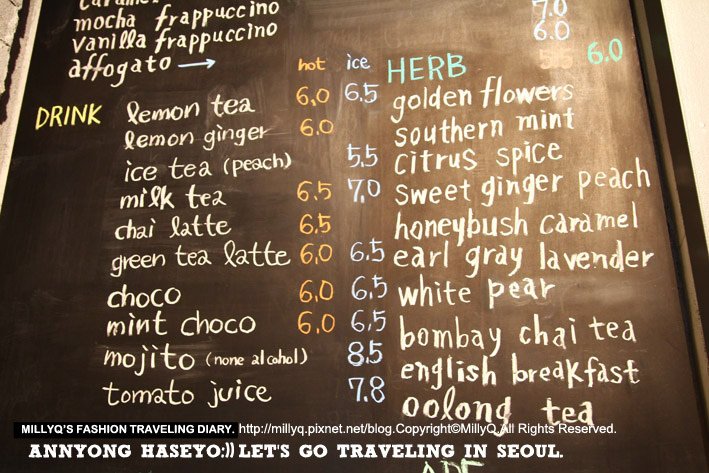 caramel
mocha frappuccino 7.0
vanilla frappuccino 6.0
affogato →
hot ice
DRINK
lemon tea 6.0 6.5
lemon ginger 6.0
ice tea (peach) 5.5
milk tea 6.5 7.0
chai latte 6.5
green tea latte 6.0 6.5
choco 6.0 6.5
mint choco 6.0 6.5
mojito (none alcohol) 8.5
tomato juice 7.8
HERB 6.0
golden flowers
southern mint
citrus spice
sweet ginger peach
honeybush caramel
earl gray lavender
white pear
bombay chai tea
english breakfast
oolong tea
MILLYQ'S FASHION TRAVELING DIARY. http://millyq.pixnet.net/blog.Copyright©MillyQ.All Rights Reserved.
ANNYONG HASEYO:)) LET'S GO TRAVELING IN SEOUL.